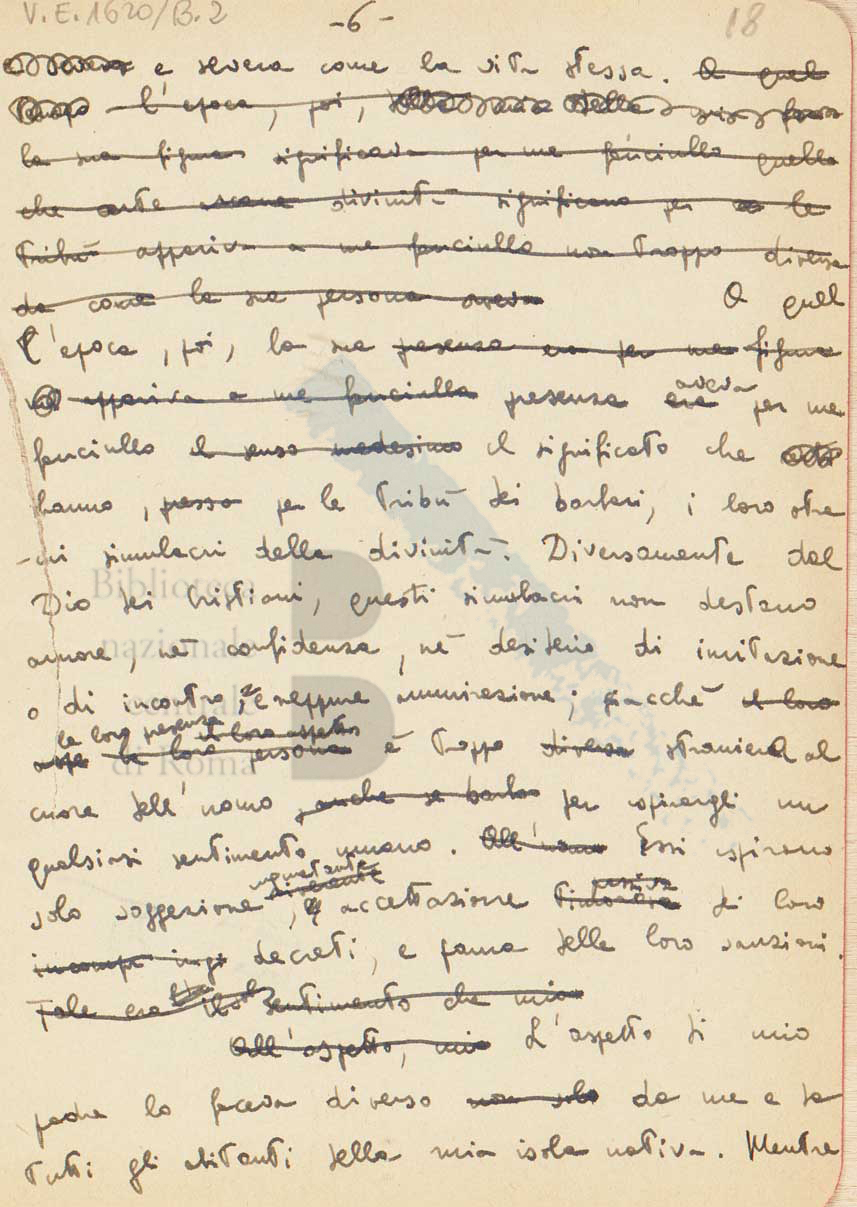 V.E.1620/B.2
-6-
18
e severa come la vita stessa. A quel
l'epoca, poi,
la sua figura significava per me fanciullo quello
che certe divinità significano per le
Tribù appariva a me fanciullo non troppo diversa
da come la sua persona aveva A quel
l'epoca, poi, la sua presenza era per me figura
appariva a me fanciullo presenza era aveva per me
fanciullo il senso medesimo il significato che
hanno, presso per le Tribù dei barbari, i loro stra
-ni simulacri della divinità. Diversamente dal
Dio dei Cristiani, questi simulacri non destano
amore, né confidenza, né desiderio di imitazione
o di incontro, e neppure ammirazione; giacché il loro
la loro presenza il loro aspetto
la loro persona è troppo diversa straniera al
cuore dell'uomo, anche se barbaro per ispirargli un
qualsiasi sentimento umano. All'uomo Essi ispirano
solo soggezione, e accettazione passiva dei loro
decreti, e paura delle loro sanzioni.
Tale era il sentimento che mio
All'aspetto, mio L'aspetto di mio
padre lo faceva diverso non solo da me e da
tutti gli abitanti della mia isola nativa. Mentre
Biblioteca
nazionale
centrale
di Roma